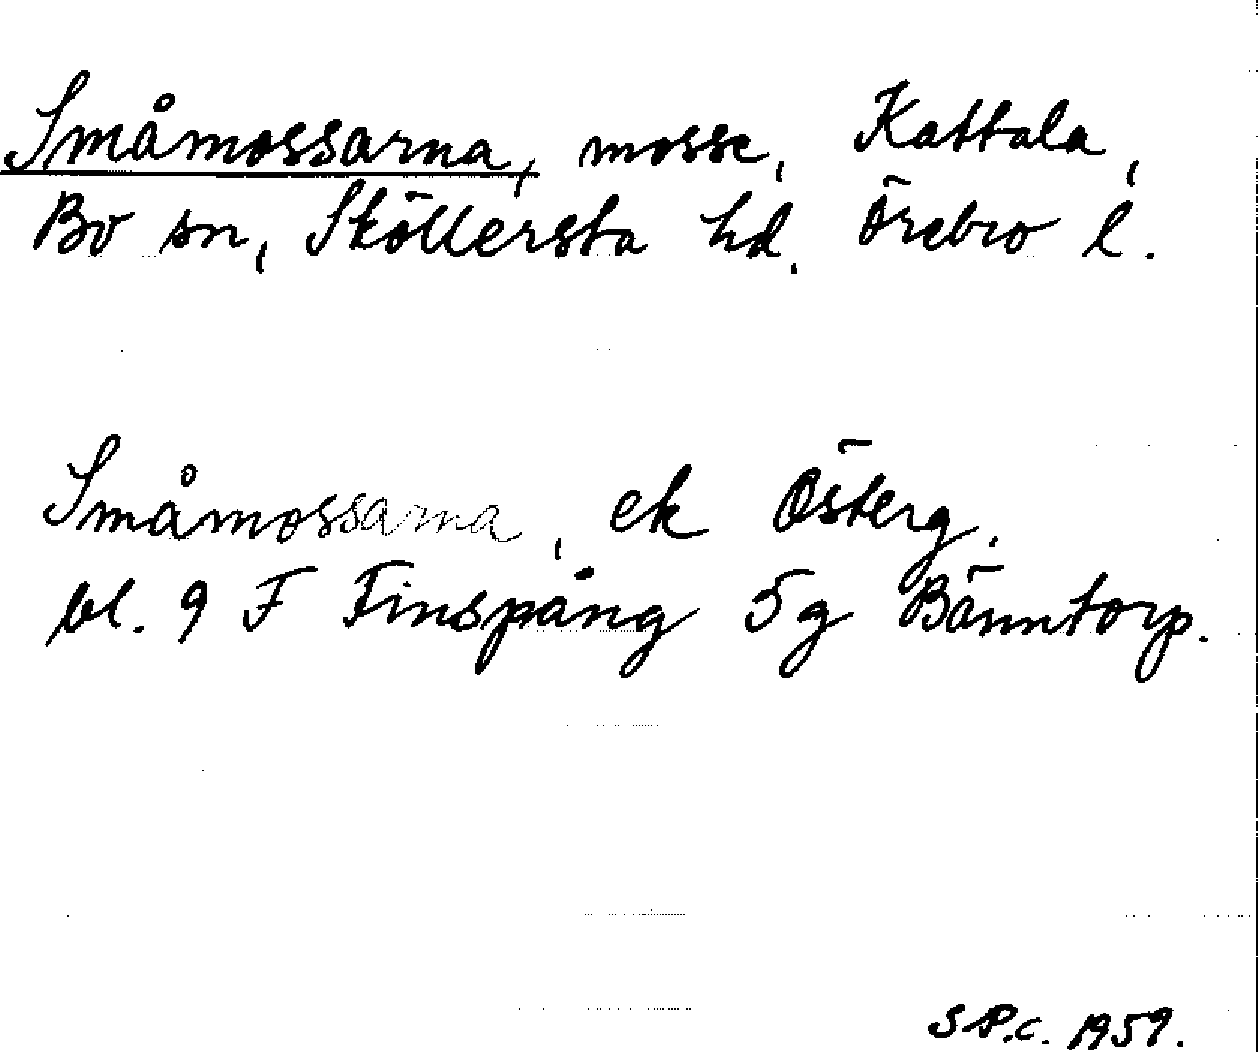 Småmossarna, mosse, Kattala,
Bo sn, Sköllersta hd, Örebro l.
Småmossarna, ek Österg,
bl. 9 F Finspång 5g Bänntorp.
S P.c. 1959.